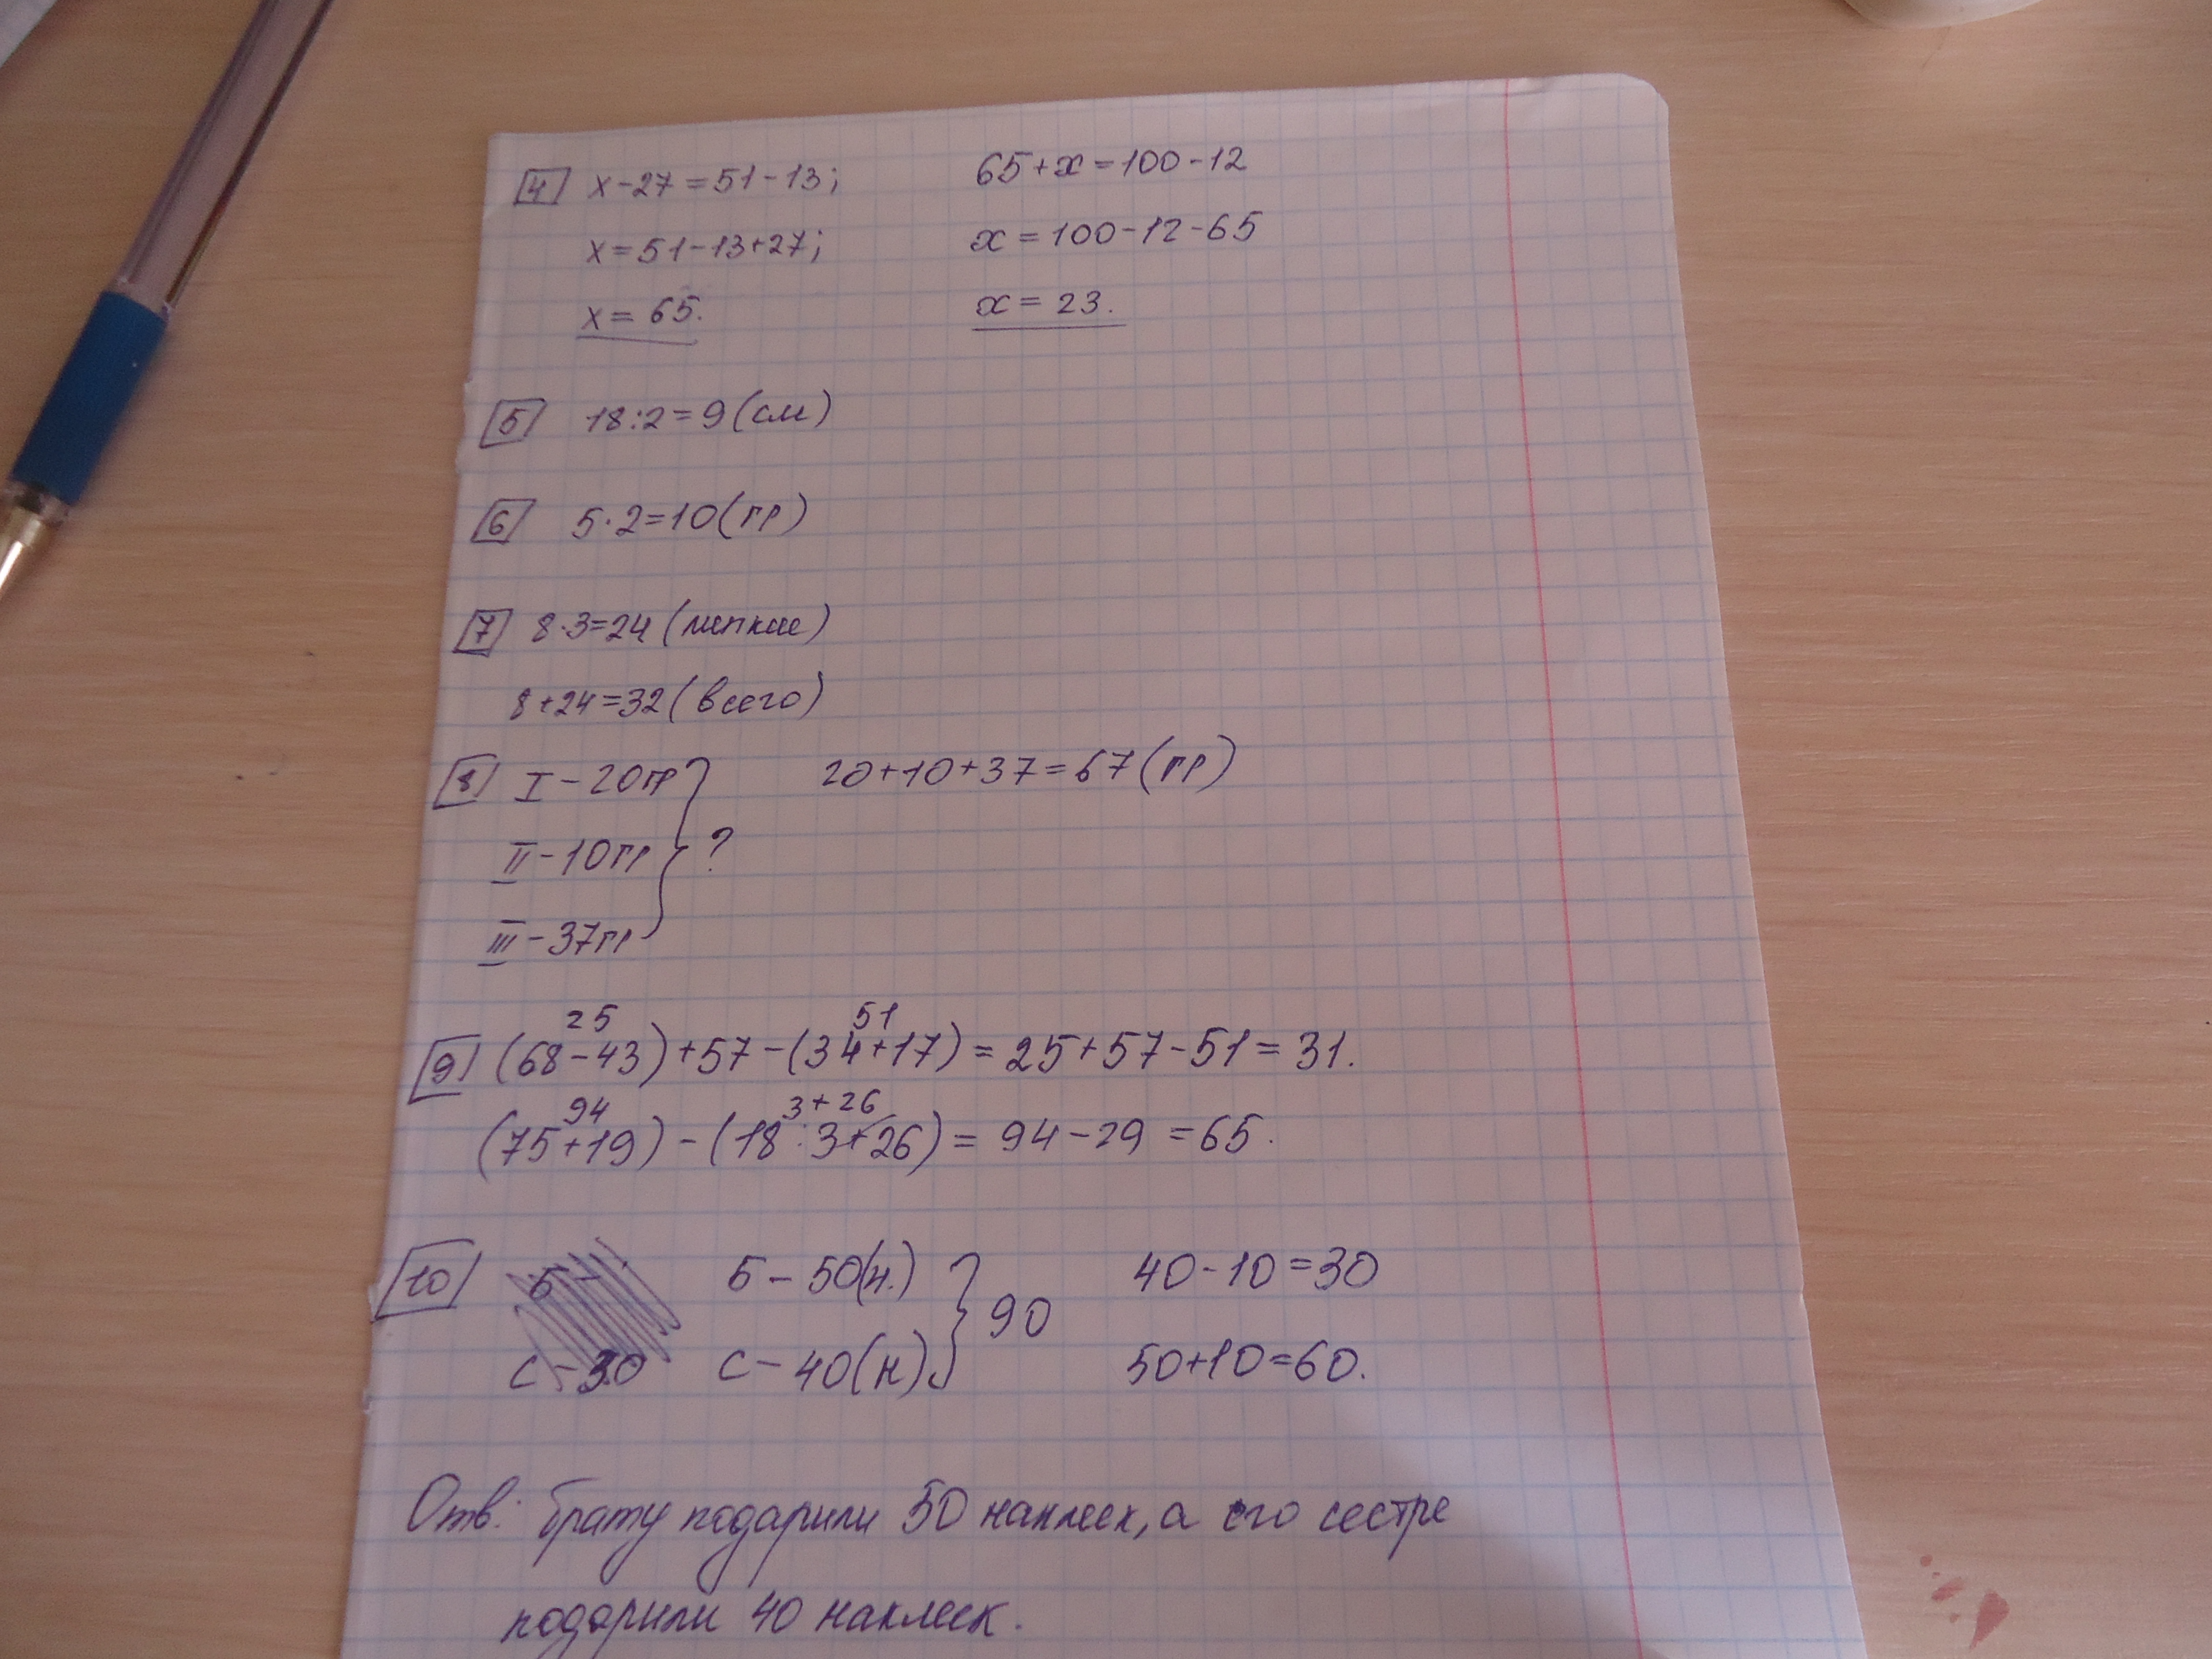 4 x-27=51-13; 65+x=100-12
x=51-13+27; x=100-12-65
x=65. x=23.
5 18:2=9(см)
6 5·2=10(гр)
7 8·3=24(мелкие)
8+24=32(всего)
8 I-20гр 20+10+37=67(гр)
II-10гр ?
III-37гр
25 51
9 (68-43)+57-(34+17)=25+57-51=31.
94 3+26
(75+19)-(18:3+26)=94-29=65.
10 Б- Б-50(н.) 40-10=30
90
С-30 С-40(н) 50+10=60.
Отв: брату подарили 50 наклеек, а его сестре
подарили 40 наклеек.